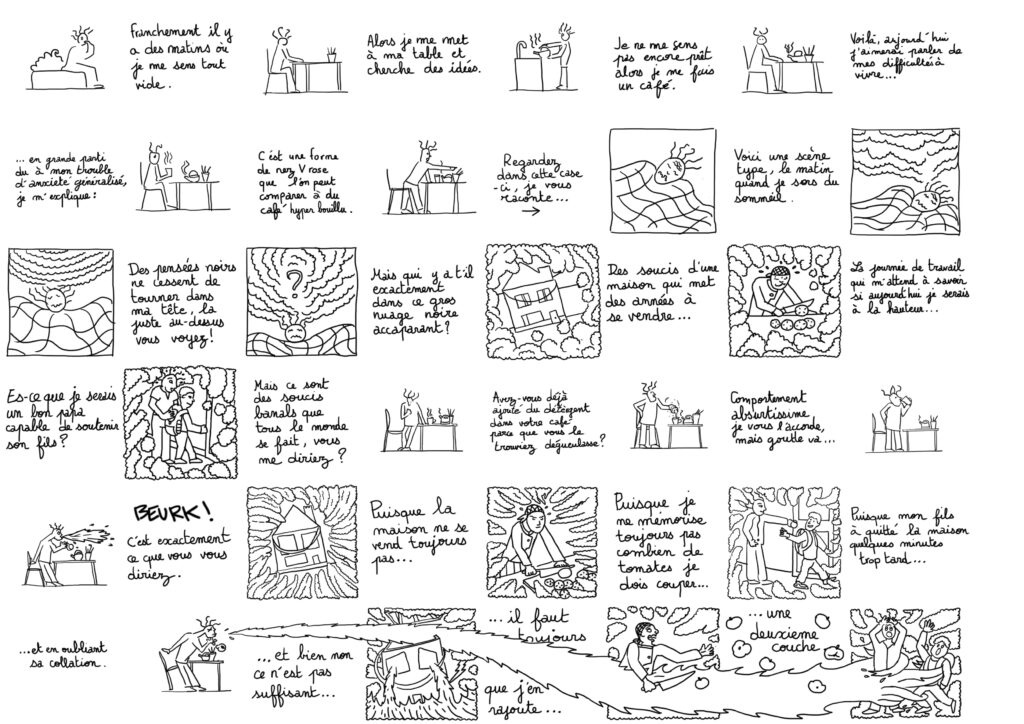 Franchement il y
a des matins où
je me sens tout
vide.
Alors je me met
à ma table et
cherche des idées.
Je ne me sens
pas encore prêt
alors je me fais
un café.
Voilà, aujourd'hui
j'aimerai parler de
mes difficultés à
vivre...
... en grande parti
du à mon trouble
d'anxiété généralisé,
je m'explique:
C'est une forme
de nerf V rose
que l'on peut
comparer à du
café hyper bouillu.
Regardez
dans cette case
-ci, je vous
raconte...
Voici une scène
type, le matin
quand je sors du
sommeil.
Des pensées noirs
ne cessent de
tourner dans
ma tête, la
juste au-dessus
vous voyez!
?
Mais qui y a t'il
exactement
dans ce gros
nuage noire
accaparant?
Des soucis d'une
maison qui met
des années à
se vendre...
La journée de travail
qui m'attend à savoir
si aujourd'hui je serais
à la hauteur...
Es-ce que je serais
un bon papa
capable de soutenir
son fils?
Mais ce sont
des soucis
banals que
tous le monde
se fait, vous
me diriez?
Avez-vous déjà
ajouté du détergent
dans votre café
parce que vous le
trouviez dégueulasse?
Comportement
absurtissime
je vous l'accorde,
mais goutte va...
BEURK!
C'est exactement
ce que vous vous
diriez.
Puisque la
maison ne se
vend toujours
pas...
Puisque je
ne mémorise
toujours pas
combien de
tomates je
dois couper...
Puisque mon fils
à quitté la maison
quelques minutes
trop tard...
...et en oubliant
sa collation.
...et bien non
ce n'est pas
suffisant...
... il faut
toujours
que j'en
rajoute...
...une
deuxième
couche